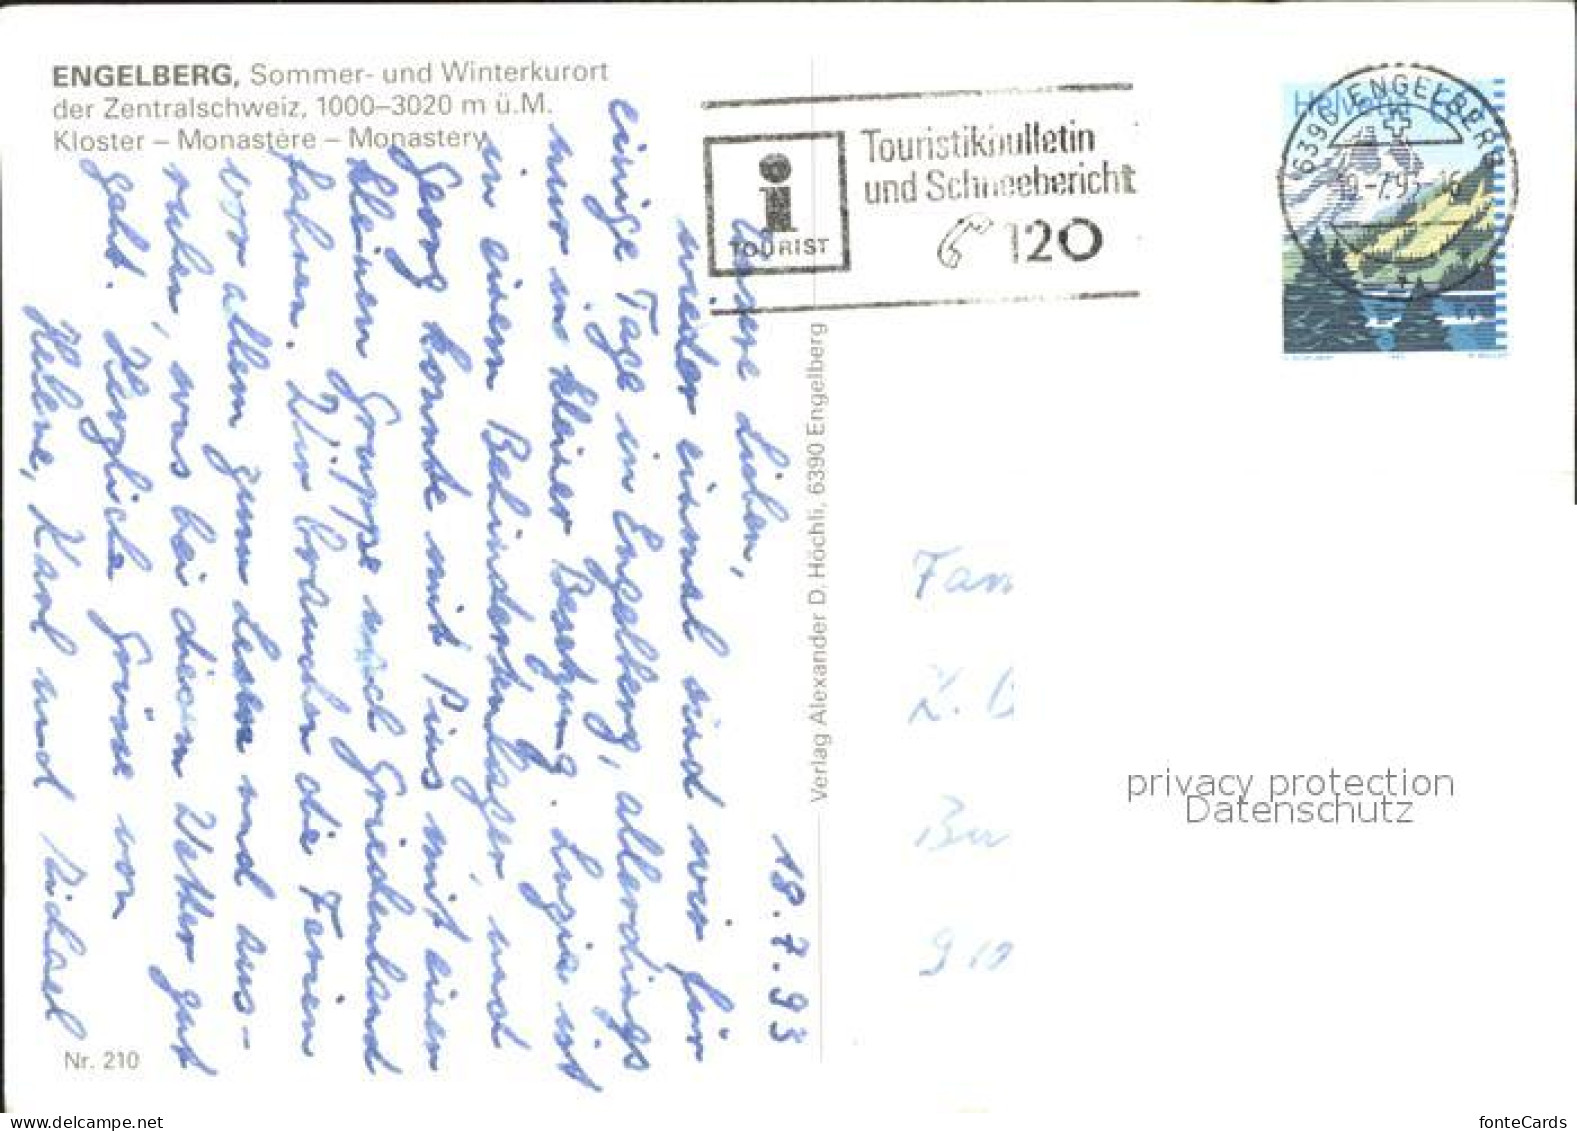 ENGELBERG, Sommer- und Winterkurort
der Zentralschweiz, 1000–3020 m ü.M.
Kloster – Monastère – Monastery
18.7.93
Liben,
wieder einmal sind wir für
einige Tage in Engelberg, allerdings
nur in kleiner Besetzung. Luzia ist
in einem Behindertenlager, und
Georg konnte mit Pius mit einer
kleinen Gruppe nach Griechenland
fahren. Wir brauchen die Ferien
vor allem zum Lesen und aus-
ruhen, was bei diesem Wetter gut
geht. Herzliche Grüsse von
Helene, Karl und Michael
Nr. 210
Verlag Alexander D. Höchli, 6390 Engelberg
i
TOURIST
Touristikbulletin
und Schneebericht
120
6390 ENGELBERG
HELVETIA
Fam
K. B
privacy protection
Datenschutz
www.delcampe.net
fonteCards